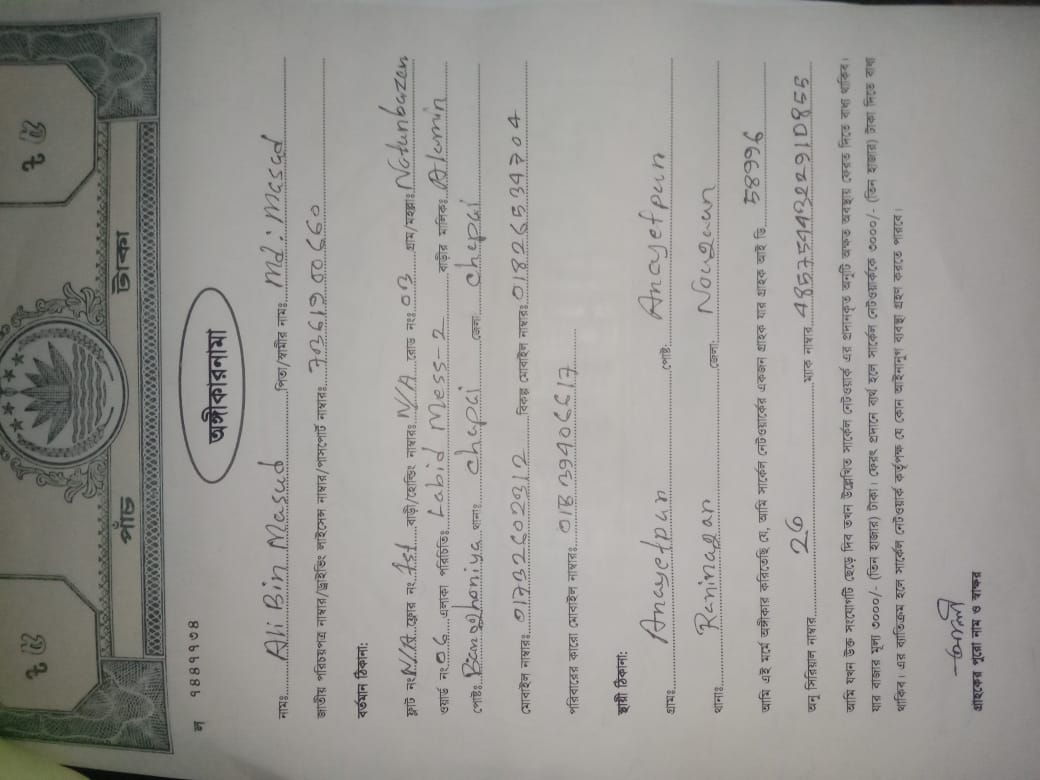 ৳ ৫ ৳ ৫
পাঁচ টাকা
ল ৭৪৪৭৭৩৪
অঙ্গীকারনামা
নামঃ Ali Bin Masud পিতা/স্বামীর নামঃ Md: Masud
জাতীয় পরিচয়পত্র নাম্বার/ড্রাইভিং লাইসেন্স নাম্বার/পাসপোর্ট নাম্বারঃ
বর্তমান ঠিকানা:
ফ্লাট নং N/A ফ্লোর নং 1st বাড়ী/হোল্ডিং নাম্বারঃ N/A রোড নংঃ 03 গ্রাম/মহল্লাঃ Notunbazan
ওয়ার্ড নং 06 এলাকা পরিচিতিঃ Labid Mess-2 বাড়ীর মালিকঃ Alamin
পোষ্টঃ থানাঃ chapai জেলা chapai
মোবাইল নাম্বারঃ বিকল্প মোবাইল নাম্বারঃ 01826534704
পরিবারের কারো মোবাইল নাম্বারঃ
স্থায়ী ঠিকানা:
গ্রামঃ Anayetpun পোষ্ট: Anayetpun
থানাঃ Raninagan জেলা: Nougaan
আমি এই মর্মে অঙ্গীকার করিতেছি যে, আমি সার্কেল নেটওয়ার্কের একজন গ্রাহক যার গ্রাহক আই ডি 58996
অনু সিরিয়াল নাম্বার 26 ম্যাক নাম্বার
আমি যখন উক্ত সংযোগটি ছেড়ে দিব তখন উল্লেখিত সার্কেল নেটওয়ার্ক এর প্রদানকৃত অনুটি অক্ষত অবস্থায় ফেরত দিতে বাধ্য থাকিব।
যার বাজার মূল্য ৩০০০/- (তিন হাজার) টাকা। ফেরৎ প্রদানে ব্যর্থ হলে সার্কেল নেটওয়ার্ককে ৩০০০/- (তিন হাজার) টাকা দিতে বাধ্য
থাকিব। এর ব্যতিক্রম হলে সার্কেল নেটওয়ার্ক কর্তৃপক্ষ যে কোন আইনানুগ ব্যবস্থা গ্রহন করতে পারবে।
গ্রাহকের পুরো নাম ও স্বাক্ষর